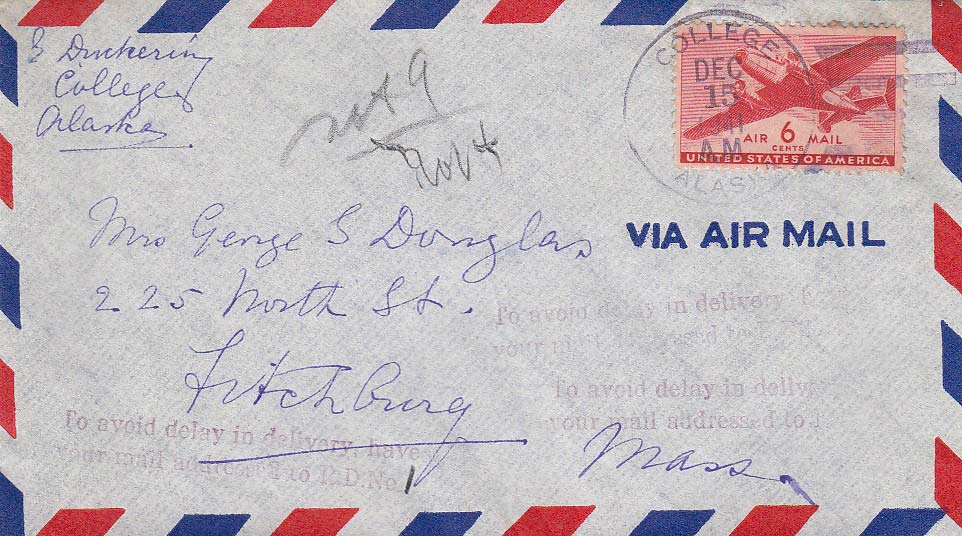 Duckering
College
Alaska
COLLEGE
DEC
15
AM
ALASKA
AIR 6 MAIL
CENTS
UNITED STATES OF AMERICA
VIA AIR MAIL
Mrs George S Douglas
225 North St.
Fitchburg
Mass.
To avoid delay in delivery
your mail addressed to
To avoid delay in deliv
your mail addressed to
To avoid delay in delivery, have
your mail addressed to R.D.No. 1